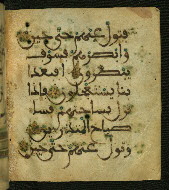 فتول عنهم حتى حين
وأبصرهم فسوف
يبصرون أفبعذا
بنا يستعجلون فإذا
نزل بساحتهم فساء
صباح المنذرين
وتول عنهم حتى حين